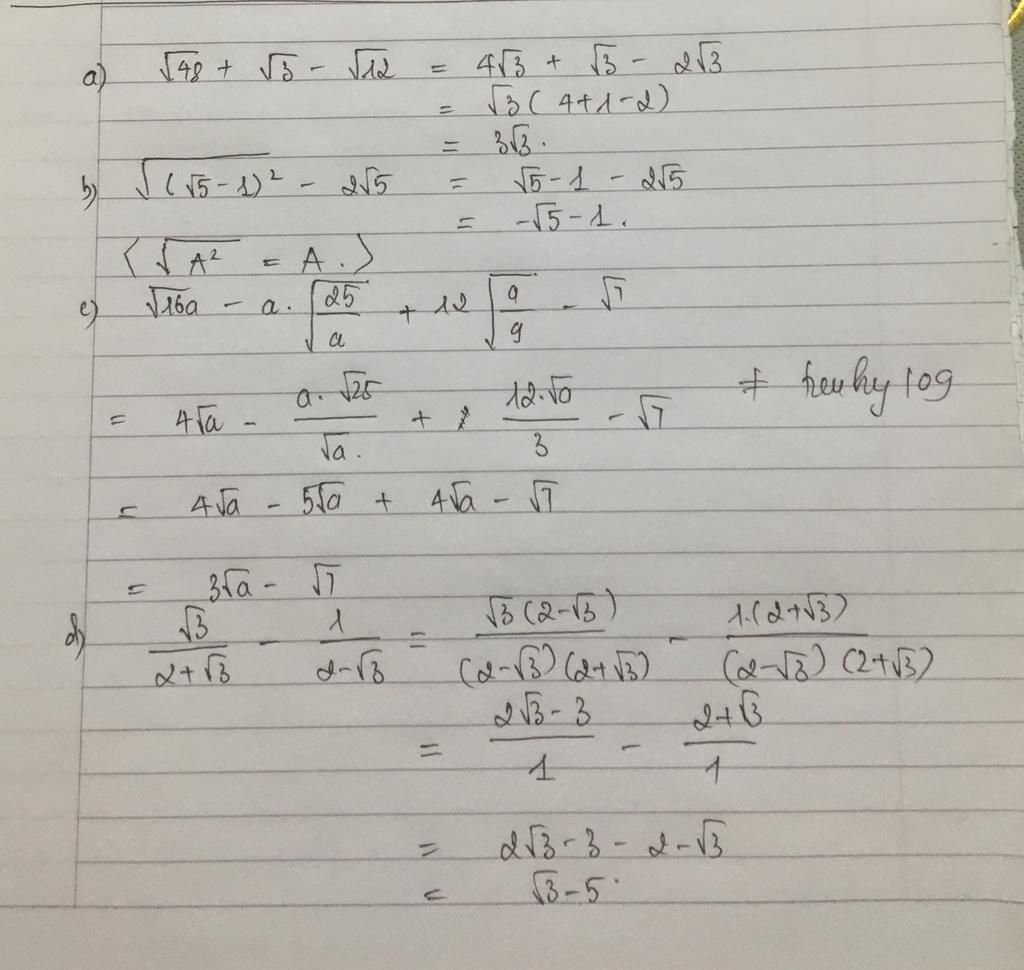 a) √48 + √3 - √12 = 4√3 + √3 - 2√3
= √3 ( 4+1-2)
= 3√3.
b) √(√5-1)² - 2√5 = √5-1 - 2√5
= -√5-1.
( √A² = A . )
c) √16a - a. √25/a + 12 √a/9 - √7
= 4√a - a.√25/√a. + 12.√a/3 - √7
= 4√a - 5√a + 4√a - √7
= 3√a - √7
d) √3/2+√3 - 1/2-√3 = √3(2-√3)/(2-√3)(2+√3) - 1.(2+√3)/(2-√3)(2+√3)
= 2√3-3/1 - 2+√3/1
= 2√3-3 - 2-√3
= √3-5.